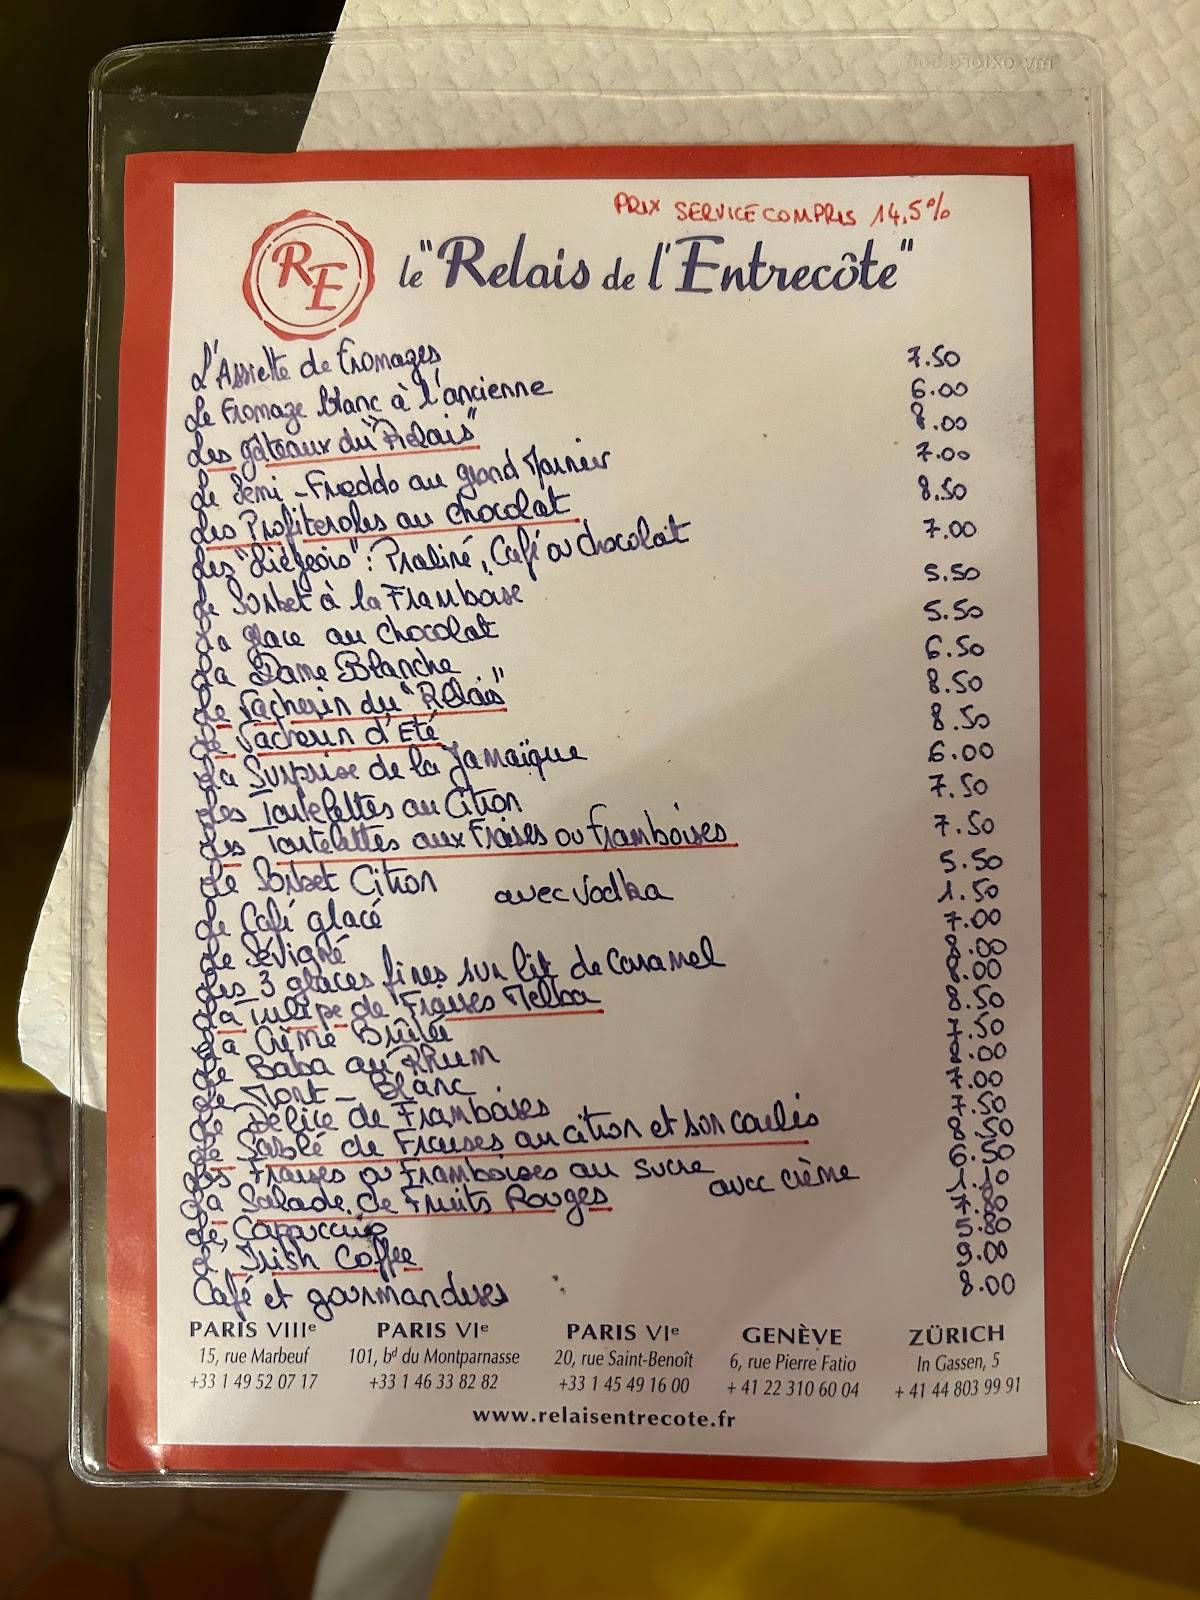 my-oxford.com
PRIX SERVICE COMPRIS 14,5%
RE le "Relais de l'Entrecôte"
L'Assiette de Fromages 7.50
Le Fromage blanc à l'ancienne 6.00
Les gâteaux du "Relais" 8.00
Le Semi-Freddo au grand Marnier 7.00
Les Profiteroles au chocolat 8.50
Les "Liégeois": Praliné, Café ou chocolat 7.00
Le Sorbet à la Framboise 5.50
La glace au chocolat 5.50
La Dame Blanche 6.50
Le Vacherin du "Relais" 8.50
Le Vacherin d'Eté 8.50
La Surprise de la Jamaïque 6.00
Les Tartelettes au Citron 7.50
Les Tartelettes aux Fraises ou Framboises 7.50
Le Sorbet Citron 5.50
avec Vodka 1.50
Le Café glacé 7.00
Le Sévigné 8.00
Les 3 glaces fines sur lit de Caramel 8.00
La Tulipe de Fraises Melba 8.50
La Crème Brûlée 7.50
Le Baba au Rhum 8.00
Le Mont-Blanc 7.00
Le Délice de Framboises 7.50
Le Sablé de Fraises au citron et son coulis 8.50
Les Fraises ou Framboises au sucre 6.50
avec crème 1.10
La Salade de Fruits Rouges 7.80
Le Cappuccino 5.80
L'Irish Coffee 9.00
Café et gourmandises 8.00
PARIS VIIIe PARIS VIe PARIS VIe GENÈVE ZÜRICH
15, rue Marbeuf 101, bd du Montparnasse 20, rue Saint-Benoît 6, rue Pierre Fatio In Gassen, 5
+33 1 49 52 07 17 +33 1 46 33 82 82 +33 1 45 49 16 00 + 41 22 310 60 04 + 41 44 803 99 91
www.relaisentrecote.fr